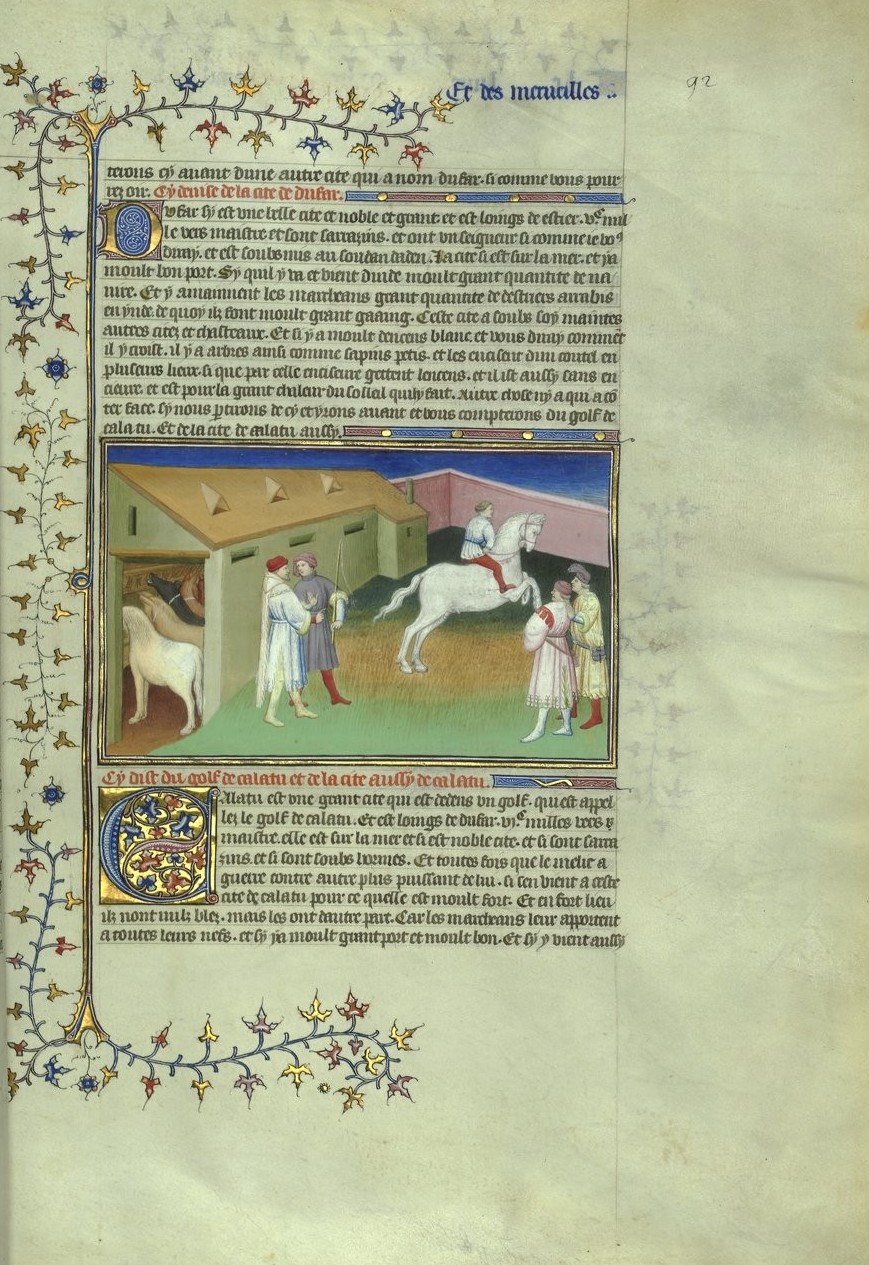 Et des merueilles ..
92
terons cy auant dune autre cite qui a nom dufar. si comme vous pour
rez oir. Cy deuise de la cite de dufar.
Dufar sy est vne belle cite et noble et grant. et est loings de escier. vc mil
le vers maistre et sont sarrazins. et ont vn seigneur si comme ie vo9
diray. et est soubsmis au soudan daden. La cite si est sur la mer. et y a
moult bon port. Sy quil y va et vient dinde moult grant quantite de na
uire. Et y amainnent les marcheans grant quantite de destriers arrabis
en ynde. de quoy ilz font moult grant gaaing. Ceste cite a soubs soy maintes
autres citez et chasteaux. Et si y a moult dencens blanc. et vous diray comment
il y croist. il y a arbres ainsi comme sapins petis. et les encisent dun coutel en
plusieurs lieux. si que par celle encisure gettent lencens. et il ist aussy sans en
cisure. et est pour la grant chaleur du soleil qui y fait. Autre chose ny a qui a co
ter face. sy nous partirons de cy et yrons auant et vous compterons du golf de
calatu. Et de la cite de calatu aussy.
Cy dist du golf de calatu et de la cite aussy de calatu.
Calatu est vne grant cite qui est dedens vn golf. qui est appel
lez le golf de calatu. Et est loings de dufar. vic milles vers
maistre. elle est sur la mer et si est noble cite. et si sont sarra
zins. et si sont soubs hormes. Et toutes fois que le melic a
guerre contre autre plus puissant de lui. si sen vient a ceste
cite de calatu pour ce quelle est moult fort. Et en fort lieu
ilz nont nulz blez. mais les ont dautre part. Car les marcheans leur apportent
a toutes leurs nefs. et sy y a moult grant port et moult bon. Et sy y vient aussy